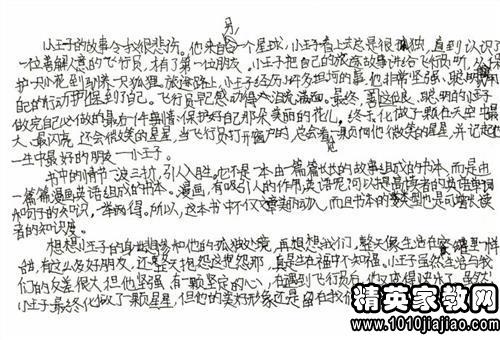 另
小王子的故事令我很悲伤。他来自一个星球,小王子看上去总是很孤独,直到认识了
一位善解人意的飞行员,有了第一位朋友。小王子把自己的旅途故事讲给飞行员听,从保
护一朵小花到驯养一只狐狸。旅途路上,小王子经历了许多坎坷的事,他非常坚强、聪明,用自
己的行动护
到了自己。飞行员
感动得
泪流满面。最终,善良
、聪明的小王子
做完自己必做的最后一件事情:保护好自己那朵美丽的花儿。终于,化做了一颗在天空中最
大、最闪亮,还会微笑的星星,当飞行员打开窗户时,总会看
一颗向他微笑的星星,并记起他
一生中最好的朋友——小王子。
书中的情节一波三折,引人入胜。它不是一本由一篇篇长长的故事组成的书本,而是由一
篇篇漫画英语组成的书本。漫画,有吸引人的作用,英语呢,可以提高读者的英语单词
和句子的知识,一举两得。所以,这本书中不仅文章超动人,而且书本的类型也是可增长读
者的知识度。
想想小王子的身世
和他的孤独处境,再想想我们,整天像生活在
罐里一样
甜,有这么多好朋友,还整天抱怨这抱怨那,真是生在福中不知福。小王子虽然生活与我
们的反差很大,但他坚强,有一颗坚定的心,在遇到飞行员后,他又变得快乐了。虽然,
小王子最终化做了一颗星星,但他的美好形象还是留在我
精英家教网
www.1010jiajiao.com